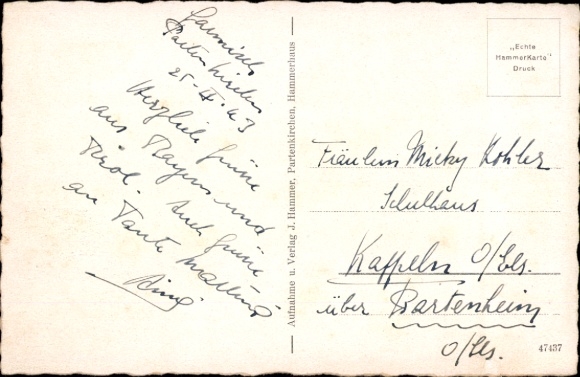 Garmisch
Partenkirchen
25. II. 43
Herzliche Grüsse
aus Bayern und
Tirol. Auch Grüsse
an Tante
Aufnahme u. Verlag J. Hammer, Partenkirchen, Hammerhaus
„Echte
HammerKarte"
Druck
Fräulein Micky Kohler
Schulhaus
Kappeln O/Els.
über Bartenheim
O/Els.
47437